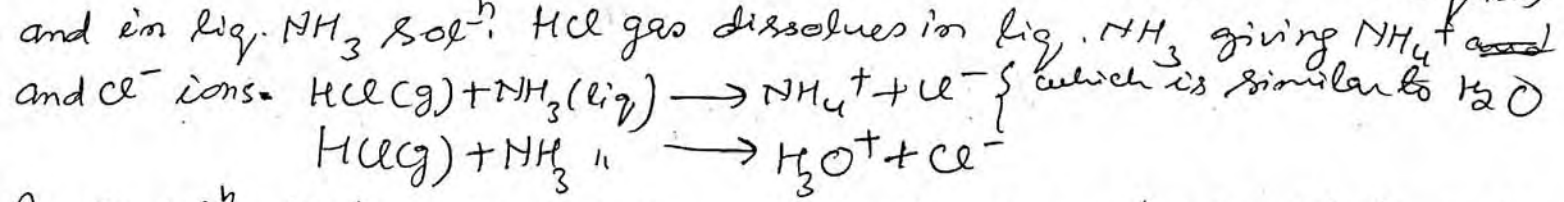 and in liq. NH₃ solⁿ. HCl gas dissolves in liq. NH₃ giving NH₄⁺ and
and Cl⁻ ions. HCl(g) + NH₃(liq) → NH₄⁺ + Cl⁻ } which is similar to H₂O
HCl(g) + NH₃ " → H₃O⁺ + Cl⁻